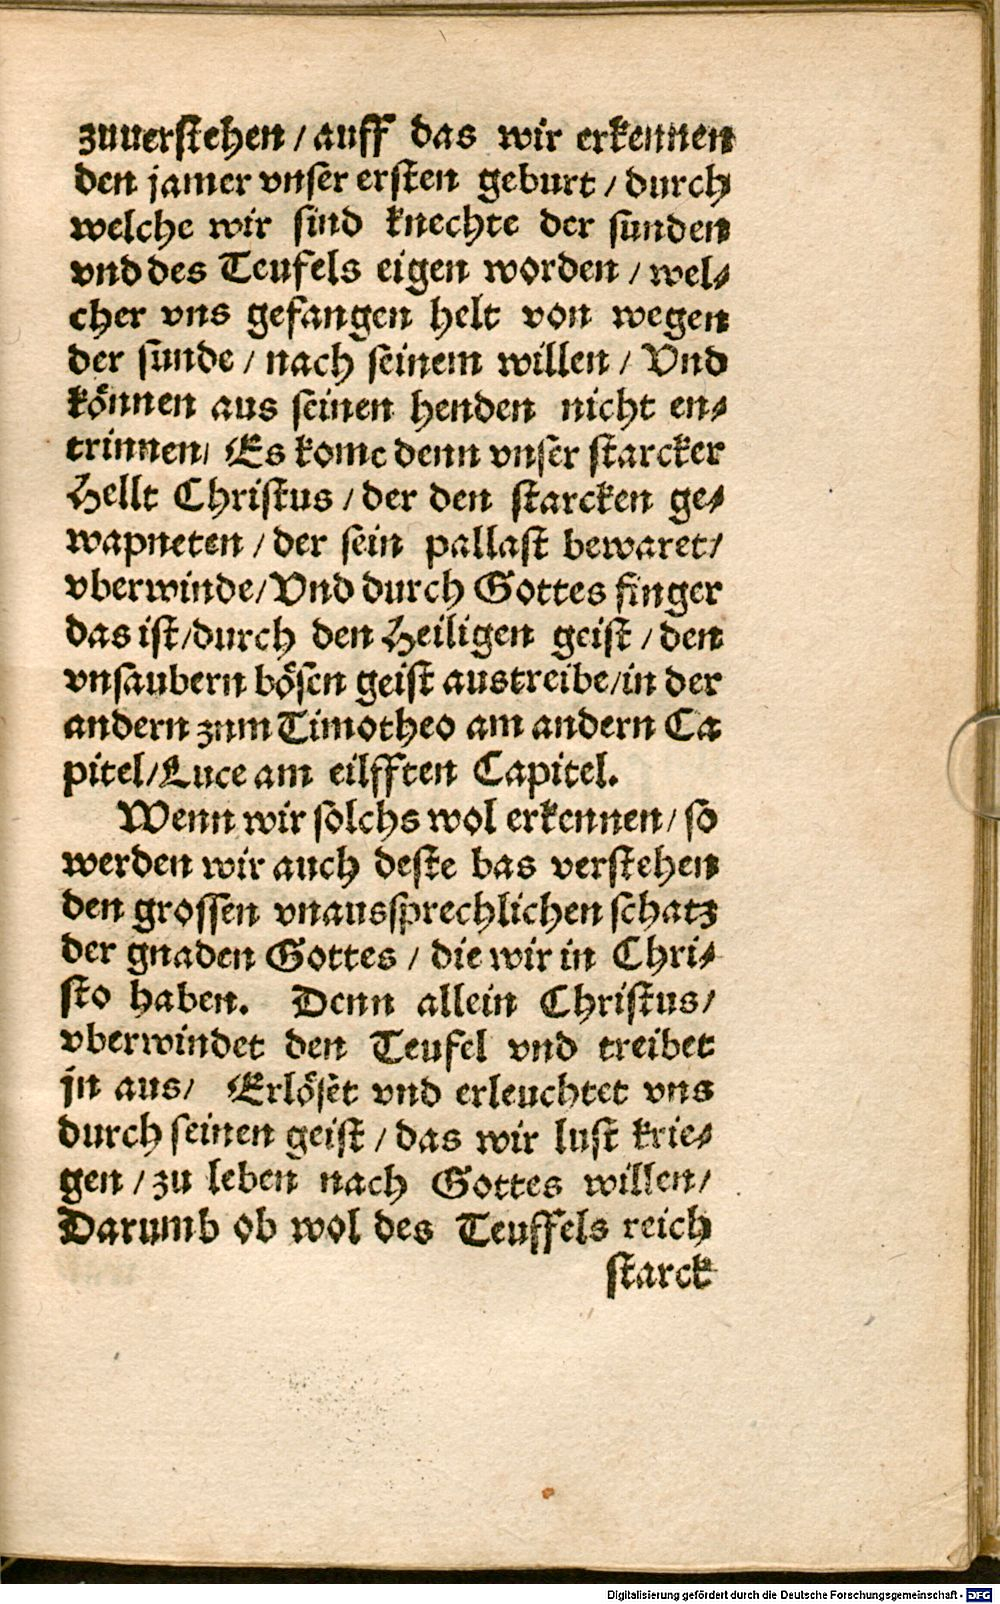 zuuerstehen / auff das wir erkennen
den jamer vnser ersten geburt / durch
welche wir sind knechte der sunden
vnd des Teufels eigen worden / wel-
cher vns gefangen helt von wegen
der sunde / nach seinem willen / Vnd
können aus seinen henden nicht en-
trinnen / Es kome denn vnser starcker
Hellt Christus / der den starcken ge-
wapneten / der sein pallast bewaret /
vberwinde / Vnd durch Gottes finger
das ist / durch den Heiligen geist / den
vnsaubern bösen geist austreibe / in der
andern zum Timotheo am andern Ca
pitel / Luce am eilfften Capitel.
Wenn wir solchs wol erkennen / so
werden wir auch deste bas verstehen
den grossen vnaussprechlichen schatz
der gnaden Gottes / die wir in Chri-
sto haben. Denn allein Christus /
vberwindet den Teufel vnd treibet
jn aus / Erlöset vnd erleuchtet vns
durch seinen geist / das wir lust krie-
gen / zu leben nach Gottes willen /
Darumb ob wol des Teuffels reich
starck
Digitalisierung gefördert durch die Deutsche Forschungsgemeinschaft - DFG